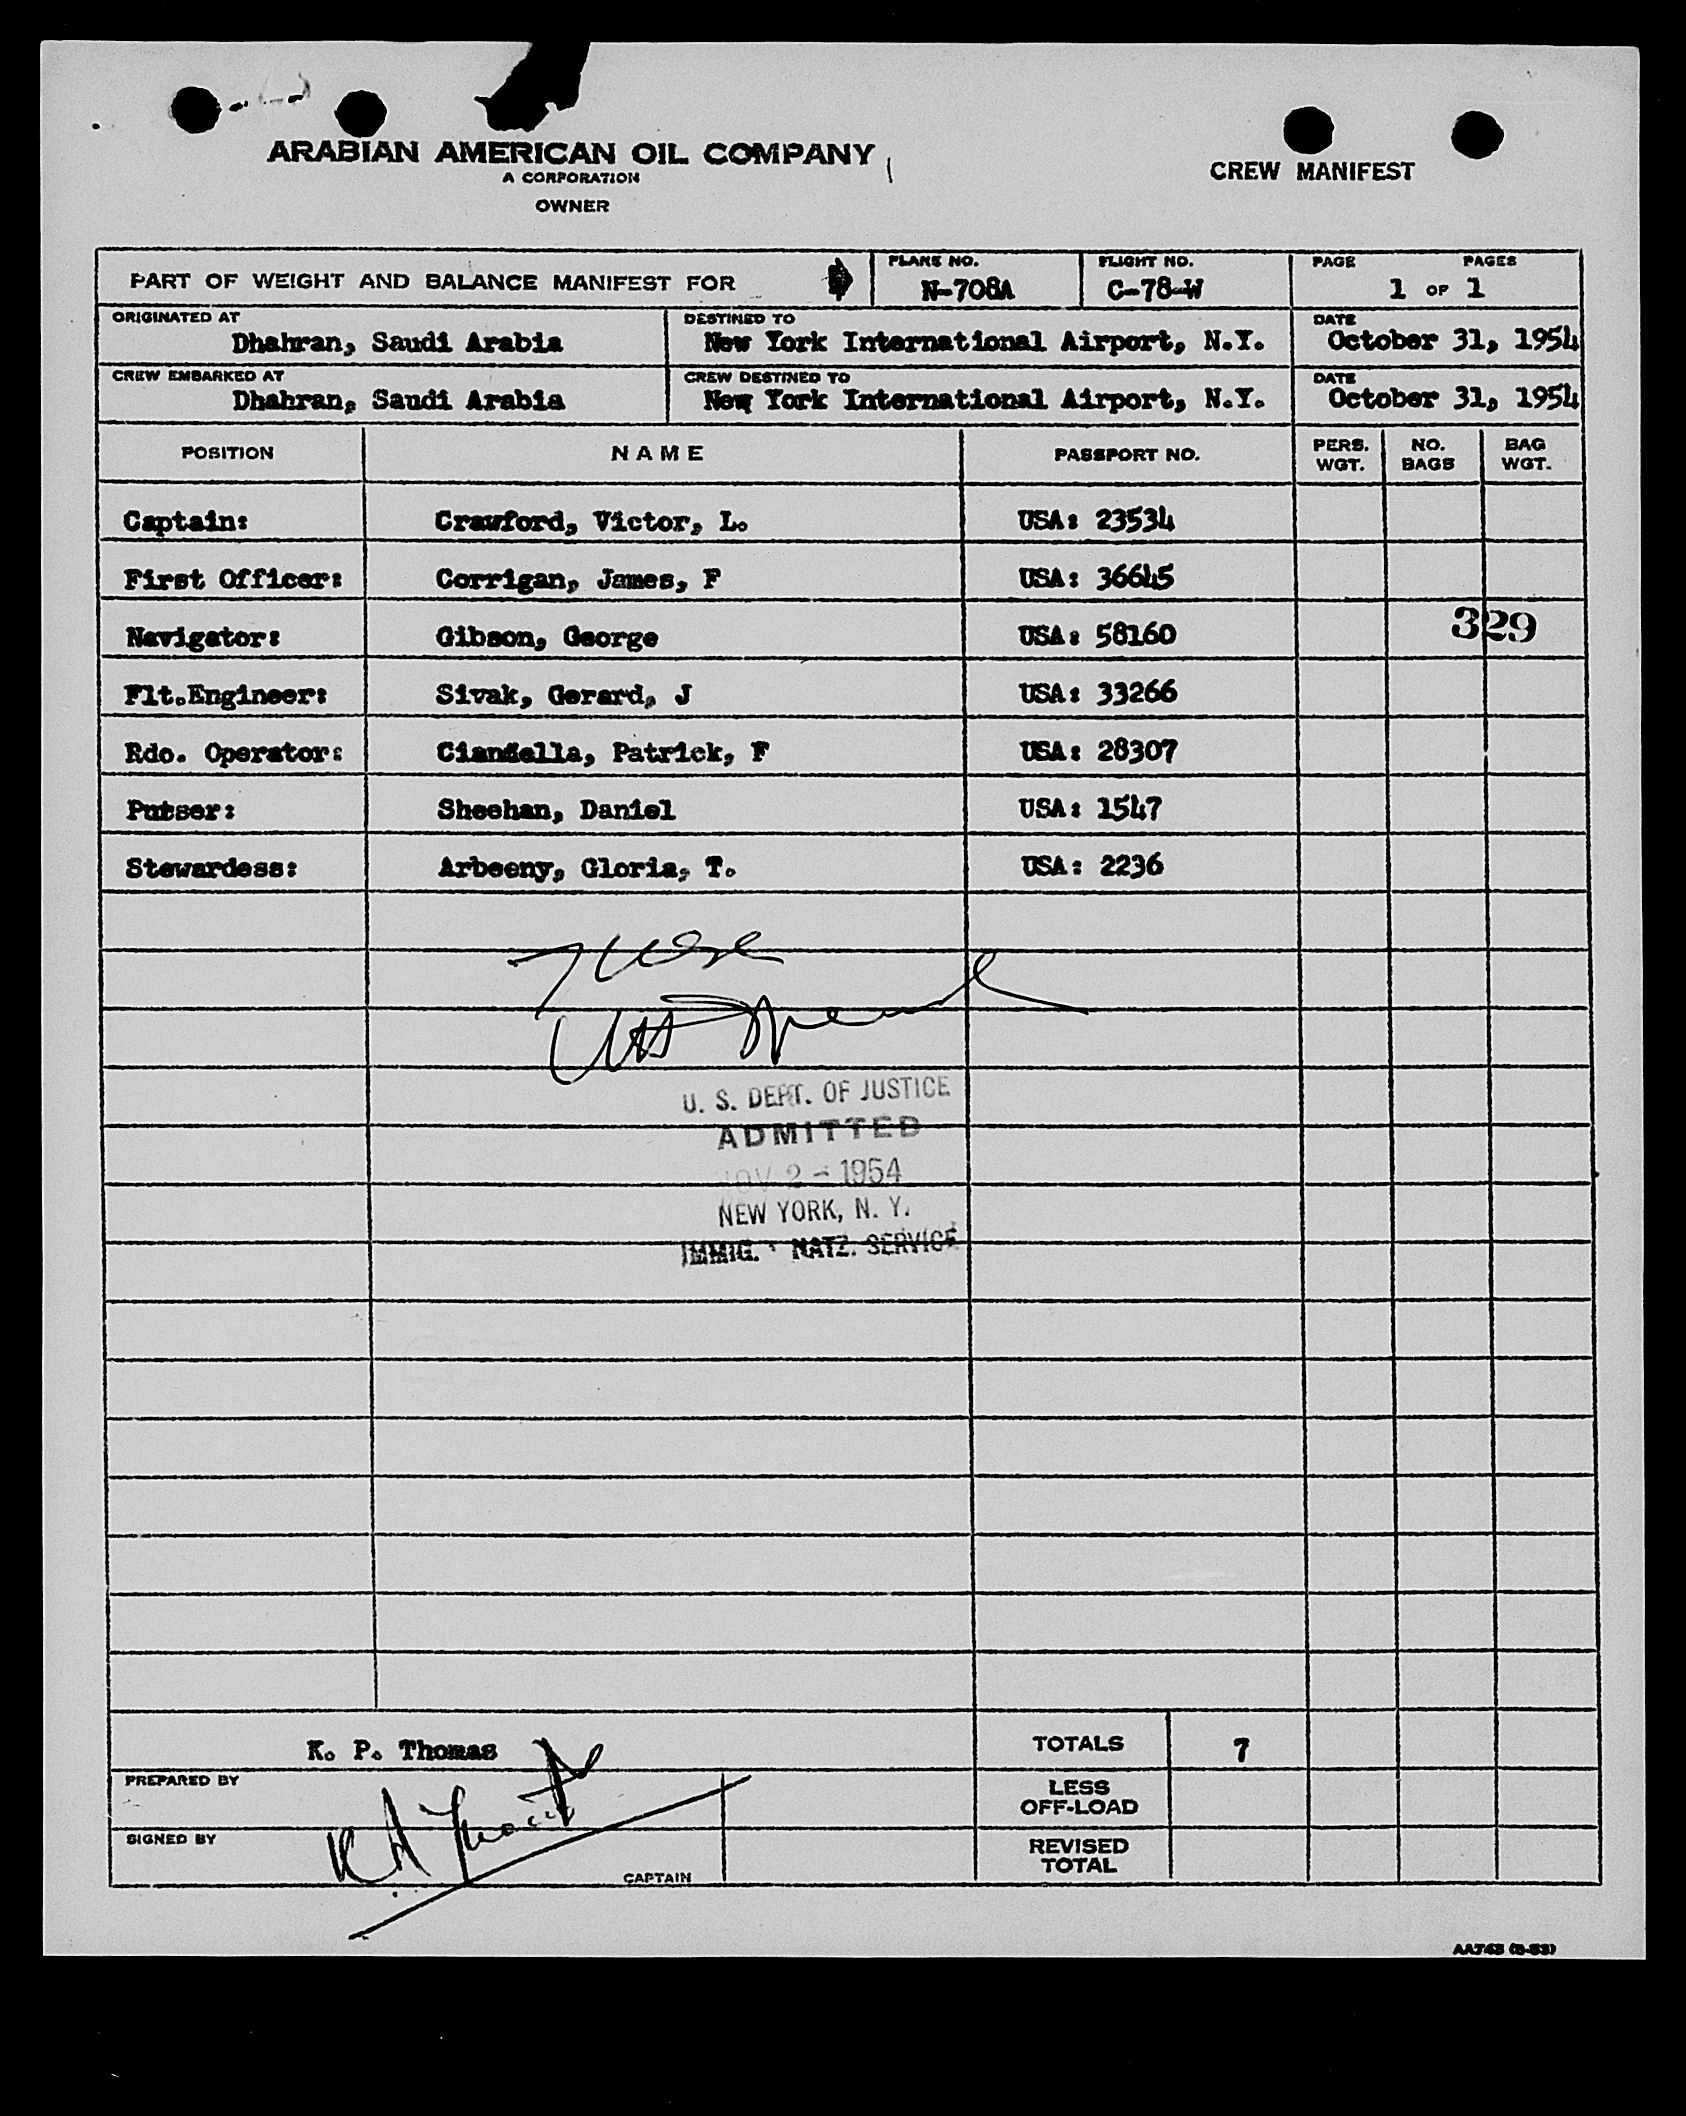 ARABIAN AMERICAN OIL COMPANY
A CORPORATION
OWNER
CREW MANIFEST
PART OF WEIGHT AND BALANCE MANIFEST FOR
PLANE NO.
N-708A
FLIGHT NO.
C-78-W
PAGE PAGES
1 OF 1
ORIGINATED AT
Dhahran, Saudi Arabia
DESTINED TO
New York International Airport, N.Y.
DATE
October 31, 1954
CREW EMBARKED AT
Dhahran, Saudi Arabia
CREW DESTINED TO
New York International Airport, N.Y.
DATE
October 31, 1954
POSITION NAME PASSPORT NO. PERS. WGT. NO. BAGS BAG WGT.
Captain: Crawford, Victor, L. USA: 23534
First Officer: Corrigan, James, F USA: 36645
Navigator: Gibson, George USA: 58160
329
Flt.Engineer: Sivak, Gerard, J USA: 33266
Rdo. Operator: Patrick, F USA: 28307
Purser: Sheehan, Daniel USA: 1547
Stewardess: Arbeeny, Gloria, T. USA: 2236
U. S. DEPT. OF JUSTICE
ADMITTED
NOV 2 - 1954
NEW YORK, N. Y.
IMMIG. NATZ. SERVICE
K. P. Thomas
PREPARED BY
SIGNED BY
CAPTAIN
TOTALS 7
LESS
OFF-LOAD
REVISED
TOTAL
AA743 (8-53)